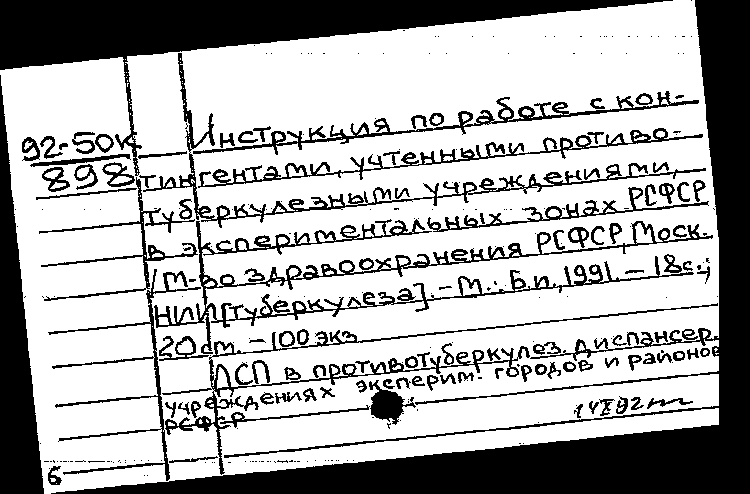 92-50к
898
Инструкция по работе с кон-
тингентами, учтенными противо-
туберкулезными учреждениями,
в экспериментальных зонах РСФСР
/ М-во здравоохранения РСФСР, Моск.
НИИ [туберкулеза]. - М.: Б.и., 1991. - 18с.;
20 см. - 100 экз
ПСП в противотуберкулез. диспансер.
учреждениях эксперим. городов и районов
РСФСР
6